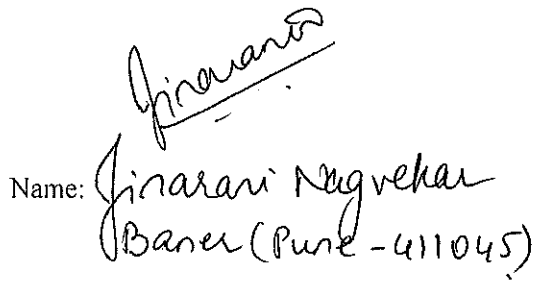 Jinarani
Name: Jinarani Nagvekar
Baner (Pune - 411045)